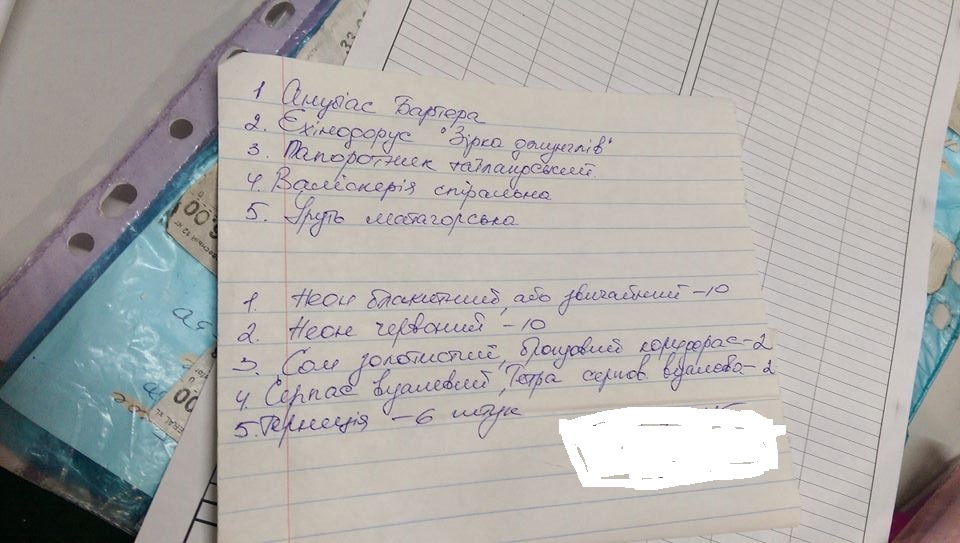 1 Анубіас Бартера
2. Ехінодорус "Зірка джунглів"
3. Папоротник таїландський
4. Валіснерія спіральна
5. Уруть матагорська
1. Неон блакитний, або звичайний - 10
2. Неон червоний - 10
3. Сом золотистий, бронзовий коридорас - 2
4. Серпас вуалевий, Тетра серпас вуалева - 2
5. Тернеція - 6 штук